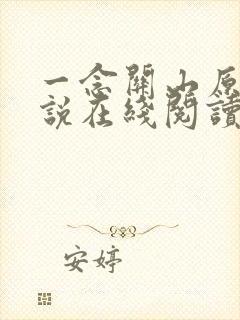 一念關山原
說在綫閱讀
安婷